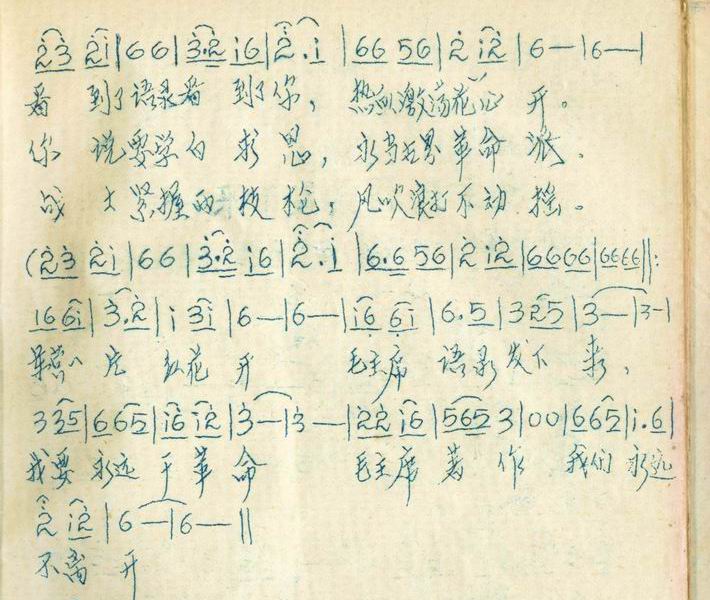 2̇3̇ 2̇1̇|66|3̇·2̇ 1̇6|2̇·1̇|66 56|2̇ 1̇2̇|6—|6—|
看 到了语录看 到了你，热血激荡花心 开。
你 说要学白 求 恩，永当世界革命 派。
战 士紧握 枪，风吹浪打不动 摇。
(2̇3̇ 2̇1̇|66|3̇·2̇ 1̇6|2̇·1̇|6·6 56|2̇ 1̇2̇|6666|6666‖:
1̇6 61̇|3̇·2̇|1̇ 3̇1̇|6—|6—|1̇6 61̇|6·5|3 25|3—|3-|
军营 红花 开 毛主席 语录发下 来，
3 35|6 65|1̇6 1̇2̇|3̇—|3̇—|2̇2̇ 1̇6|565 3|00|6 65|1̇·6|
我要 永远 干 革 命 毛主席 著 作 我们 永远
2̇ 1̇2̇|6—|6—‖
不离 开